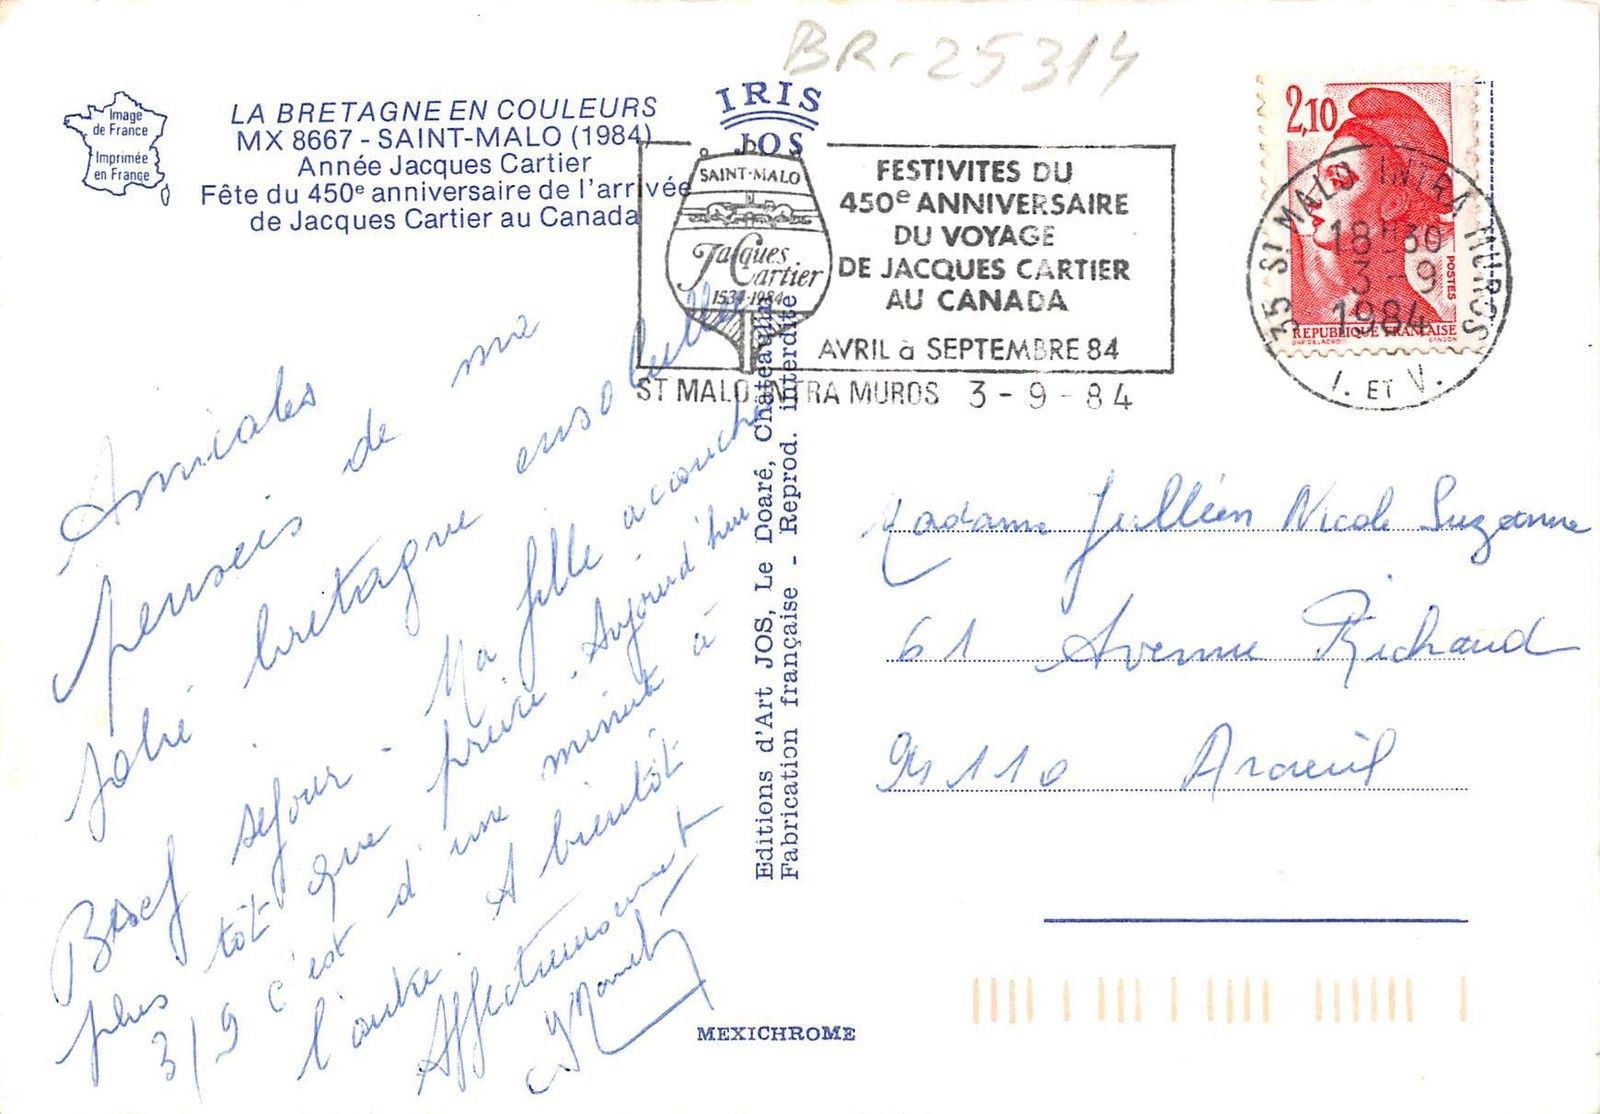 BR-25314
Image
de France
Imprimée
en France
LA BRETAGNE EN COULEURS
MX 8667 - SAINT-MALO (1984)
Année Jacques Cartier
Fête du 450e anniversaire de l'arrivée
de Jacques Cartier au Canada
IRIS
JOS
SAINT-MALO
Jacques
Cartier
1534-1984
FESTIVITES DU
450e ANNIVERSAIRE
DU VOYAGE
DE JACQUES CARTIER
AU CANADA
AVRIL à SEPTEMBRE 84
ST MALO INTRA MUROS 3-9-84
2,10
POSTES
REPUBLIQUE FRANÇAISE
35 ST MALO INTRA MUROS
18H30
3-9
1984
I. ET V.
Amicales
penseis de ma
jolie bretagne ensoleillée
Ma fille accouche
Bref sejour - plus tôt que prevu - Aujourd'hui
3/9 c'est d'une minute à
l'autre. A bientôt
Affectueusement
Editions d'Art JOS, Le Doaré, Châteaulin
Fabrication française - Reprod. interdite
Madame Jullien Nicole Suzanne
61 Avenue Richaud
94110 Arcueil
MEXICHROME